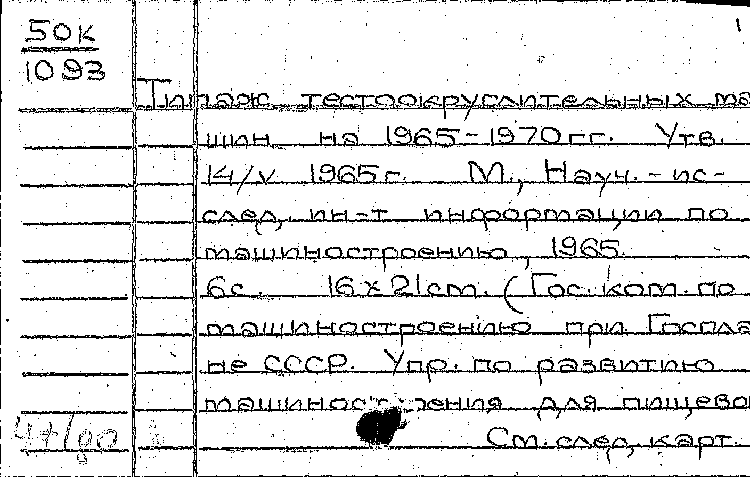 50к
1093
1
Типаж тестоокруглительных ма
шин на 1965-1970гг. Утв.
14/V 1965г. М., Науч.-ис-
след. ин-т информации по
машиностроению, 1965.
6с. 16x21см. (Гос. ком. по
машиностроению при Госпла
не СССР. Упр. по развитию
машиностроения для пищево
См. след. карт.